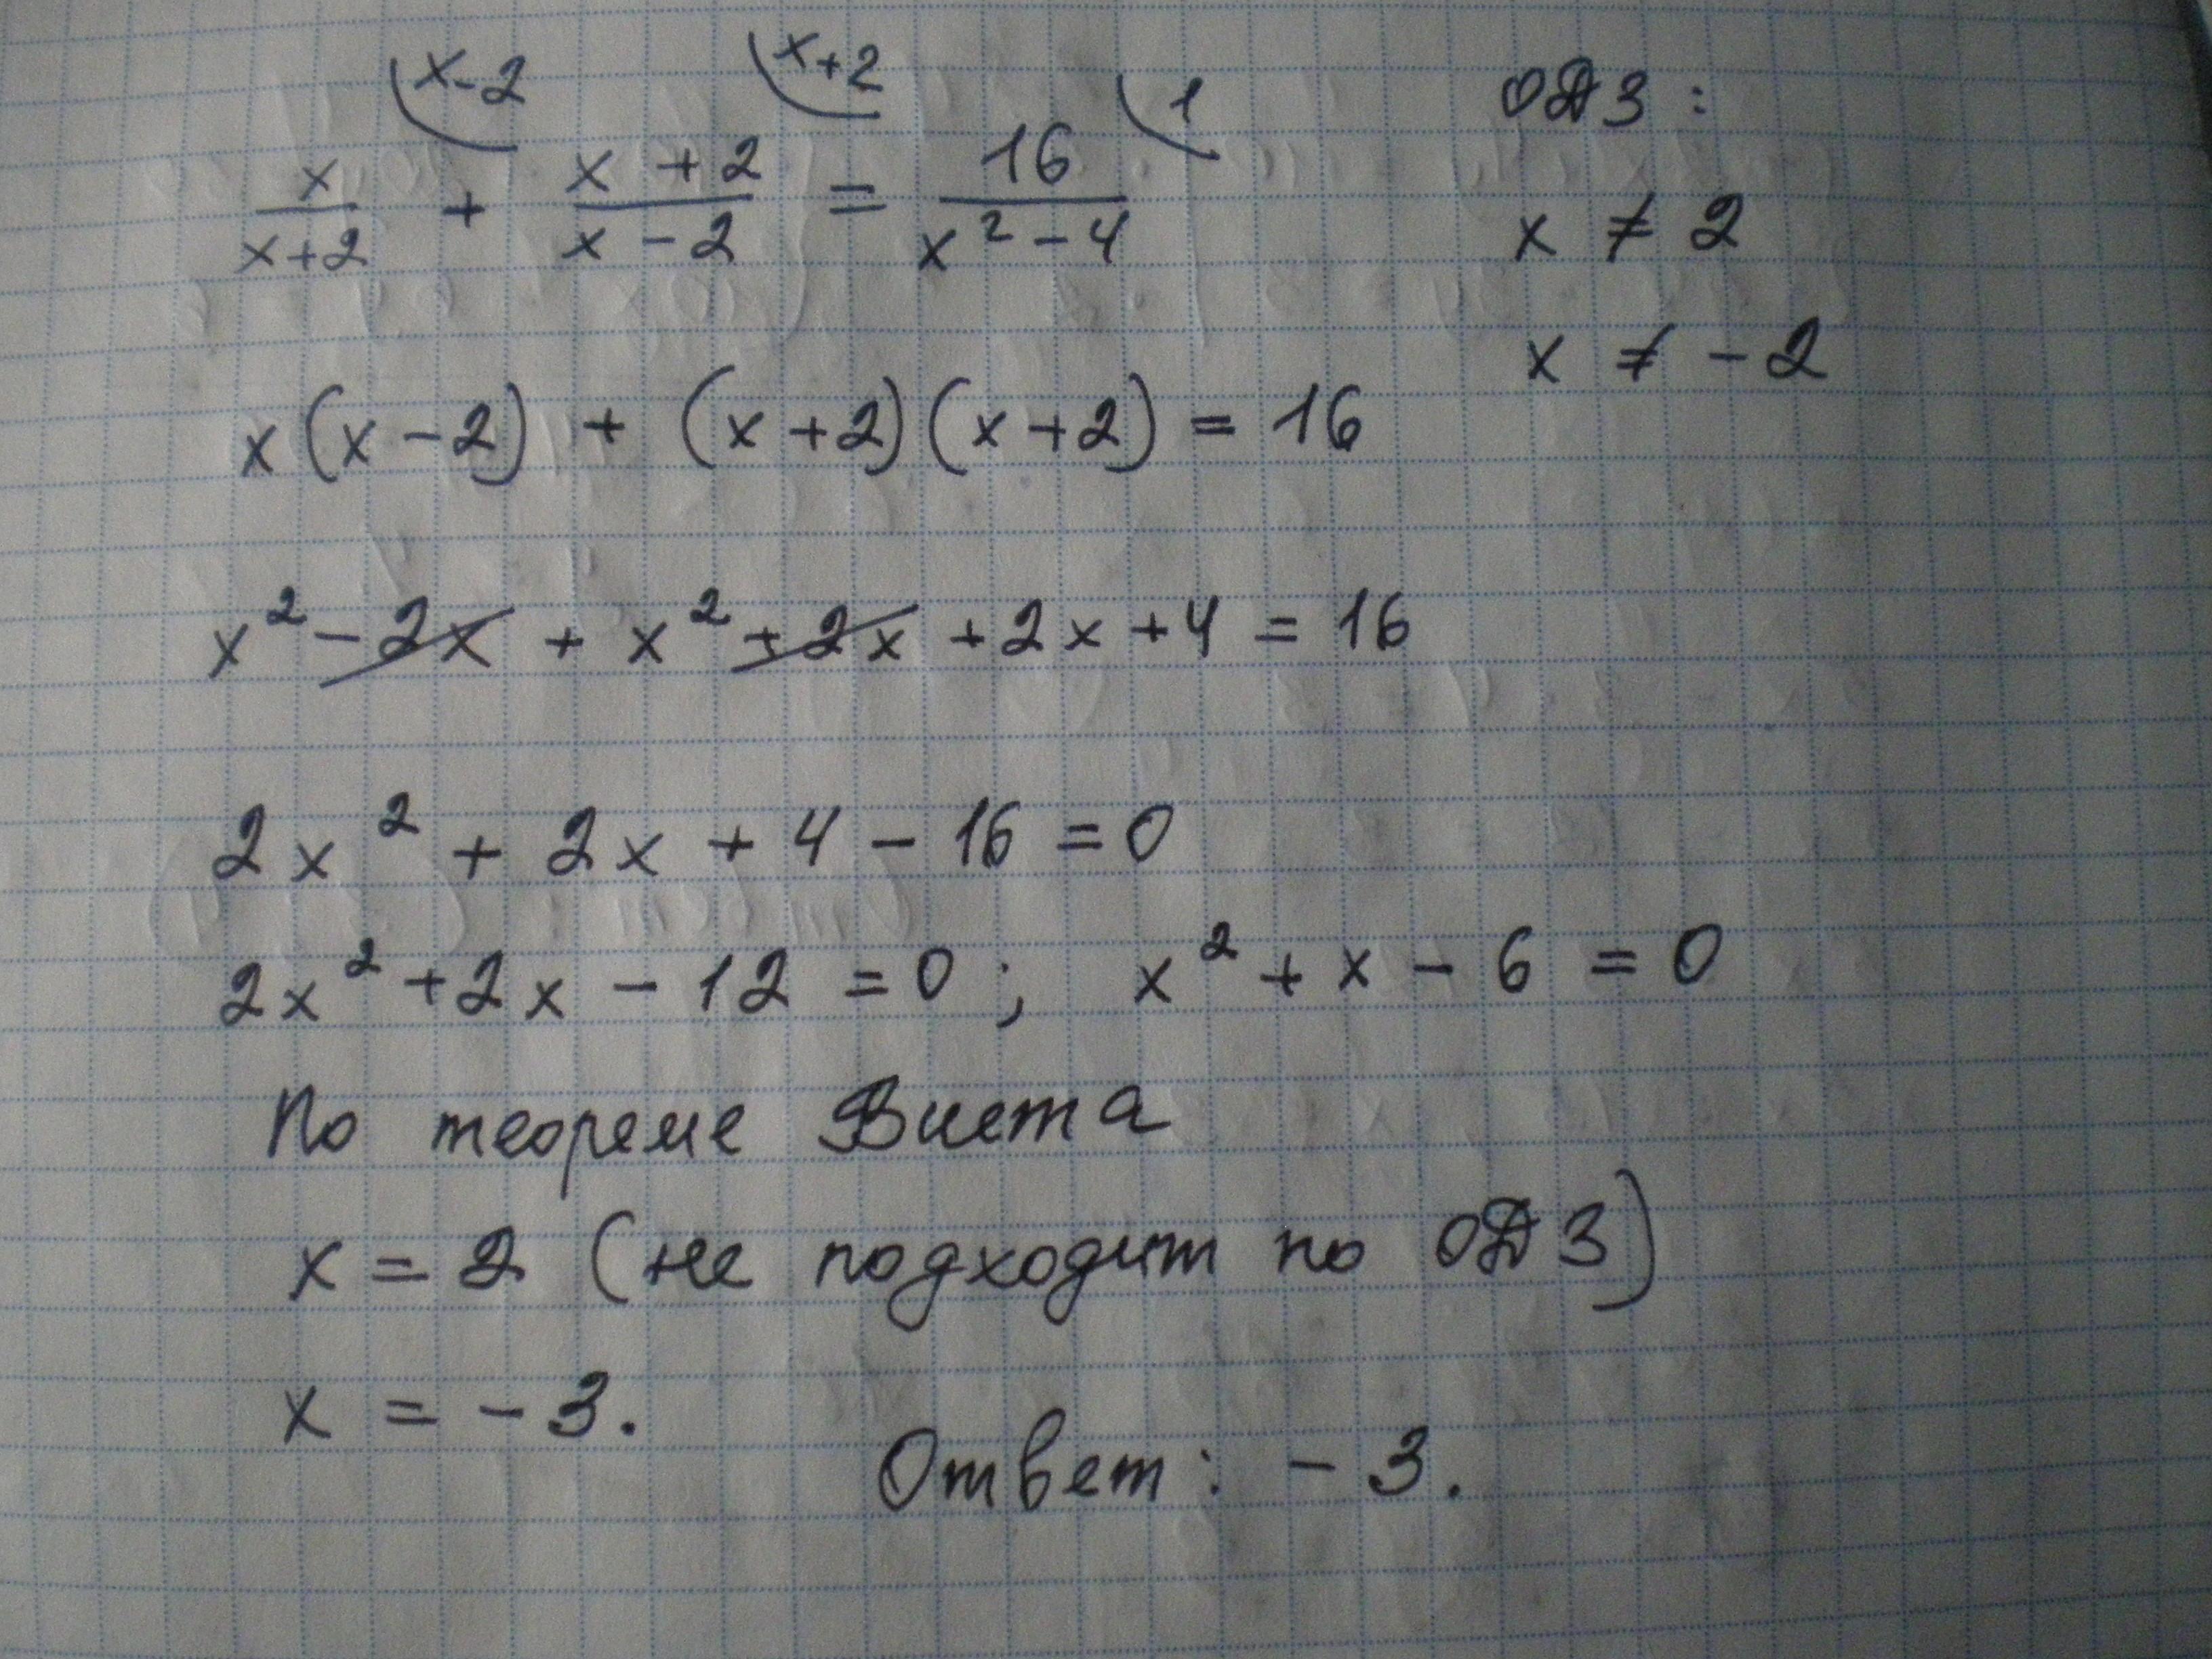 x/(x+2) (x-2 + (x+2)/(x-2) (x+2 = 16/(x² - 4) (1
ОДЗ:
x ≠ 2
x ≠ -2
x(x-2) + (x+2)(x+2) = 16
x² - 2x + x² + 2x + 2x + 4 = 16
2x² + 2x + 4 - 16 = 0
2x² + 2x - 12 = 0; x² + x - 6 = 0
По теореме Виета
x = 2 (не подходит по ОДЗ)
x = -3.
Ответ: -3.